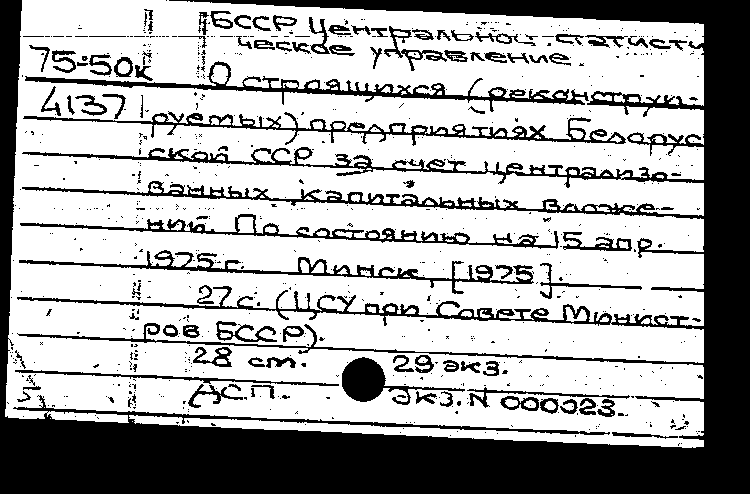 БССР. Центральное статисти
ческое управление.
75-50к
О строящихся (реконструи-
4137
руемых) предприятиях Белорус
ской ССР за счет централизо-
ванных капитальных вложе-
ний. По состоянию на 15 апр.
1975 г. Минск, [1975].
27 с. (ЦСУ при Совете Минист-
ров БССР).
28 см. 29 экз.
ДСП. Экз. N 000023.